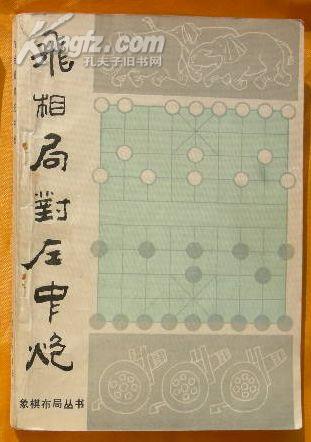 kongfz.com
孔夫子旧书网
飛相局對左中炮
象棋布局丛书